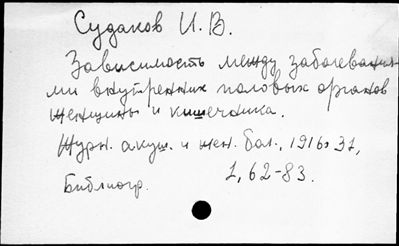 Судаков И. В.
Зависимость между заболевания-
ми внутренних половых органов
женщины и кишечника.
Журн. акуш. и жен. бол., 1916, 31,
Библиогр. 1, 62-83.